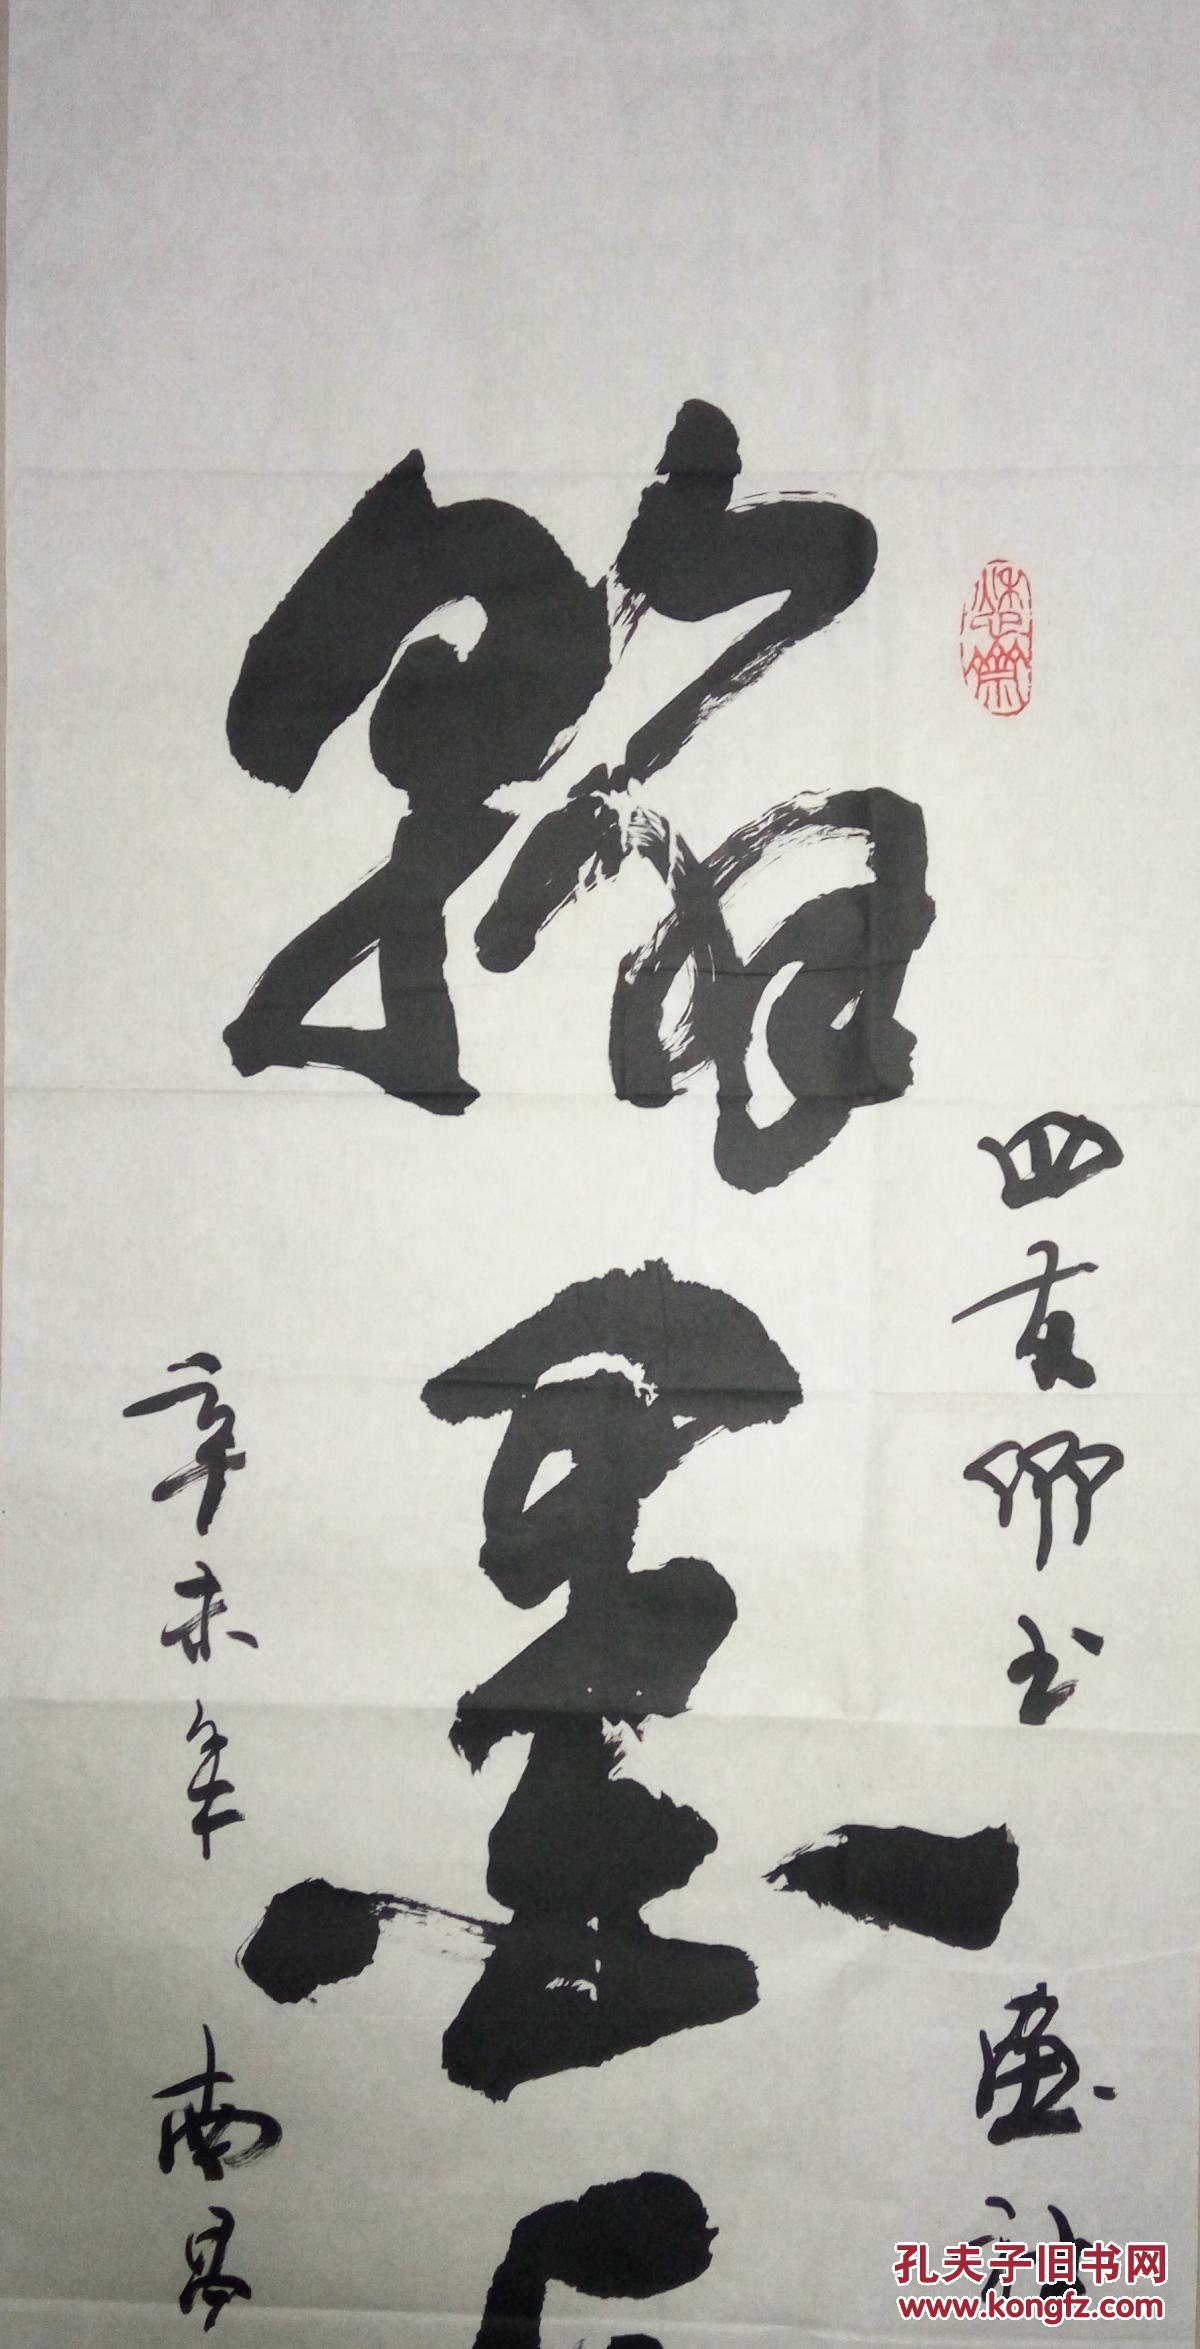 四友卿书画社
翰墨
辛未年南昌
孔夫子旧书网
www.kongfz.com